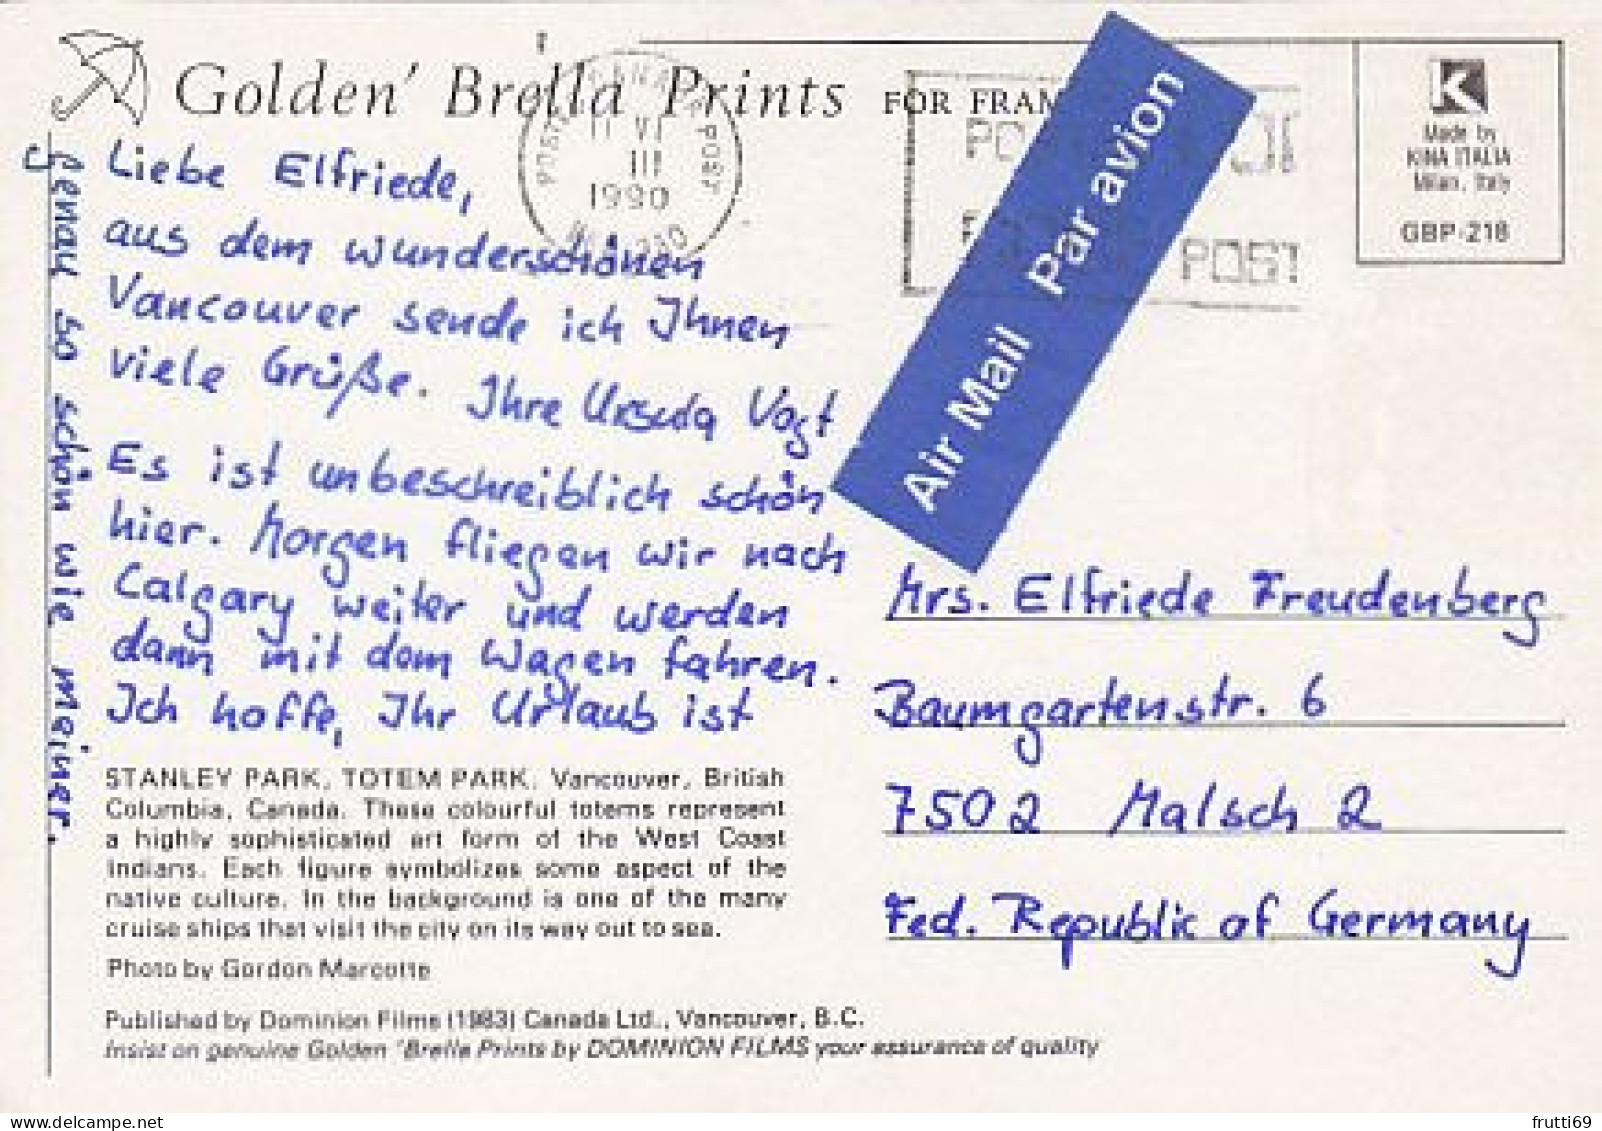 Golden' Brella Prints FOR FRAM
Made by
KINA ITALIA
Milan, Italy
GBP-218
POST
1990
POST
Air Mail Par avion
Liebe Elfriede,
aus dem wunderschönen
Vancouver sende ich Ihnen
viele Grüße. Ihre Ursula Vogt
Es ist unbeschreiblich schön
hier. Morgen fliegen wir nach
Calgary weiter und werden
dann mit dem Wagen fahren.
Ich hoffe, Ihr Urlaub ist
genau so schön wie meiner.
Mrs. Elfriede Freudenberg
Baumgartenstr. 6
7502 Malsch 2
Fed. Republic of Germany
STANLEY PARK, TOTEM PARK, Vancouver, British
Columbia, Canada. These colourful totems represent
a highly sophisticated art form of the West Coast
Indians. Each figure symbolizes some aspect of the
native culture. In the background is one of the many
cruise ships that visit the city on its way out to sea.
Photo by Gordon Marcotte
Published by Dominion Films (1983) Canada Ltd., Vancouver, B.C.
Insist on genuine Golden 'Brella Prints by DOMINION FILMS your assurance of quality
www.delcampe.net
frutti69